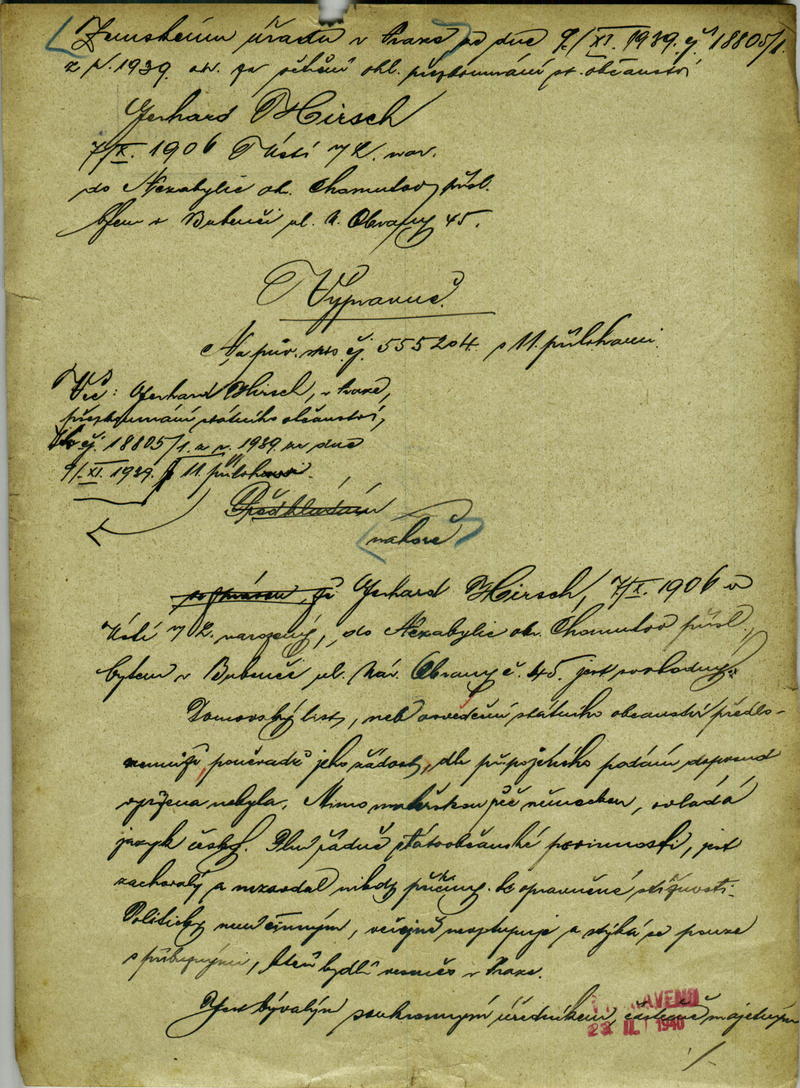 Zemskému úřadu v Praze ze dne 9/XI. 1939. čj. 18805/1.
z r. 1939. ohl. přezkoumání st. občanství
Gerhard Hirsch
7/X. 1906 Ústí n/L. nar.
do Nezabylic ok. Chomutov přísl.
bytem v Bubenči ul. N. Obrany 45.
Vypravuč.
Na pův. čj. 555204. s 11. přílohami.
Věc: Gerhard Hirsch, v Praze,
přezkoumání státního občanství,
čj. 18805/1. z r. 1939. ze dne
9/XI. 1939. 11. příloh
Předkládám
nahoře
že Gerhard Hirsch, 7/X. 1906 v
Ústí n/L. narozený, do Nezabylic okr. Chomutov přísl.,
bytem v Bubenči ul. Nár. Obrany č. 45. jest svobodný.
Domovský list, neb osvědčení státního občanství předlo-
poněvadž jeho žádost, dle připojeného podání doposud
vyřízena nebyla. Mimo mateřskou řeč německou, ovládá
jazyk český. Plní řádně státoobčanské povinnosti, jest
zachovalý a nezavdal nikdy příčiny ku oprávněné stížnosti.
Politicky není činným, veřejně nevystupuje a stýká se pouze
s příbuznými, kteří bydlí vesměs v Praze.
Jest bývalým soukromým úředníkem, částečně majetným
VYPRAVENO
23 II. 1940
./.